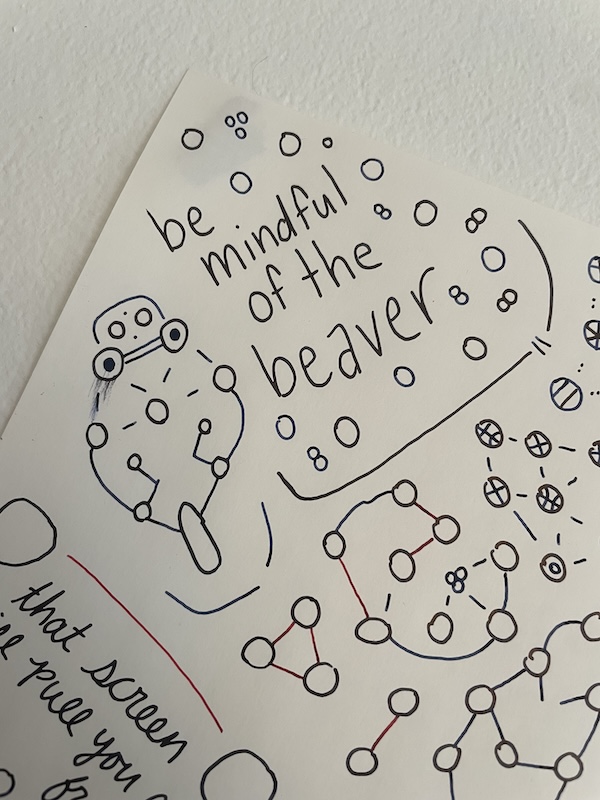 be
mindful
of the
beaver
that screen
pull you